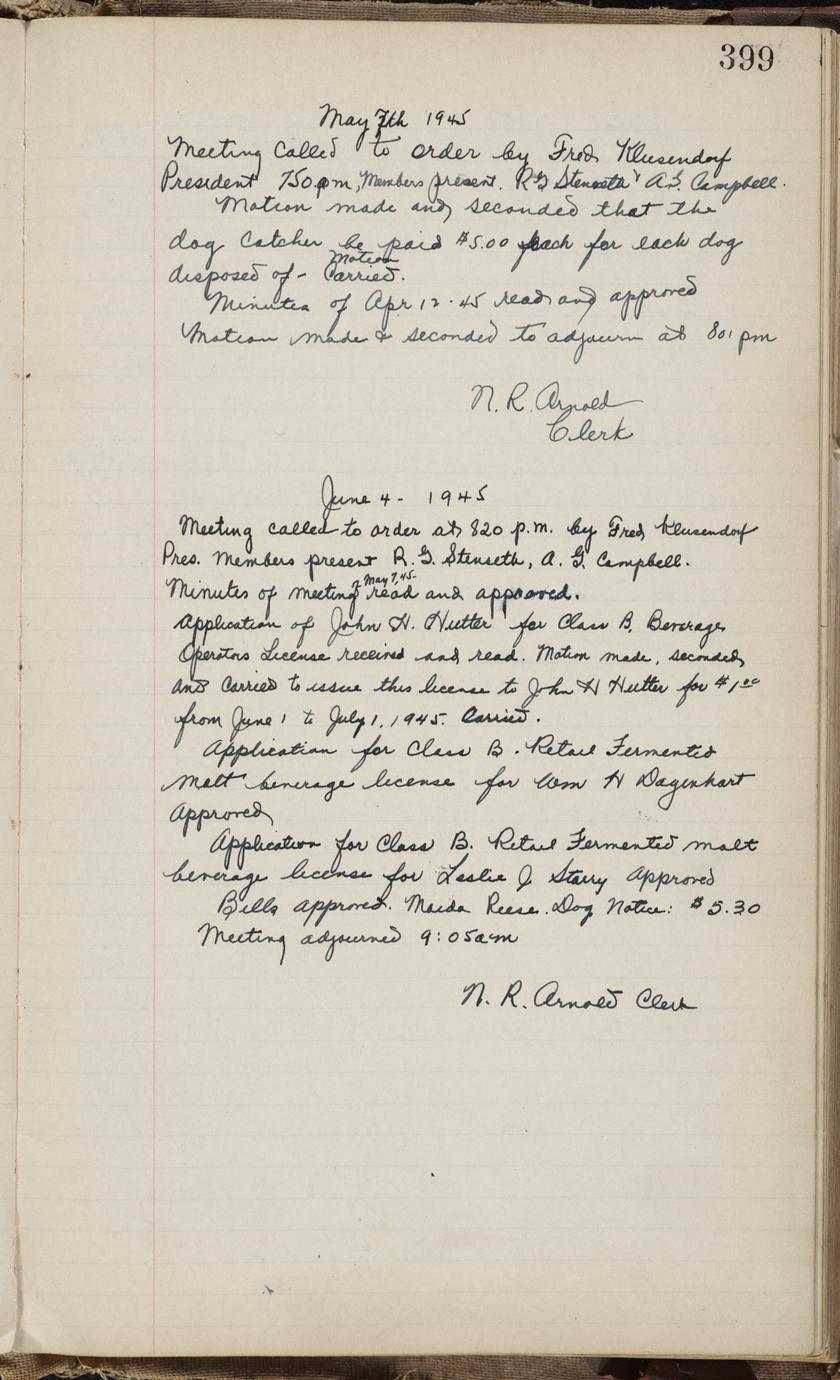 399
May 7th 1945
Meeting Called to order by Fred Klusendorf
President 750pm, Members present. R G Stenseth & A.G. Campbell.
Motion made and seconded that the
dog Catcher be paid $5.00 each for each dog
disposed of - Motion Carried.
Minutes of Apr 12 - 45 read and approved
Motion made & seconded to adjourn at 801 pm
N. R. Arnold
Clerk
June 4 - 1945
Meeting called to order at 820 p.m. by Fred Klusendorf
Pres. Members present R. G. Stenseth, A. G. Campbell.
Minutes of meeting of May 7, 45- read and approved.
Application of John H. Hutter for Class B. Beverage
Operators License received and read. Motion made, seconded,
and Carried to issue this license to John H Hutter for $1.00
from June 1 to July 1, 1945. Carried.
Application for Class B. Retail Fermented
Malt beverage license for Wm H Dagenhart
Approved
Application for Class B. Retail Fermented malt
beverage license for Leslie J Starry Approved
Bills approved. Maida Reese. Dog Notice: $5.30
Meeting adjourned 9:05am
N. R. Arnold Clerk